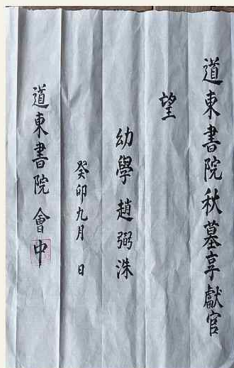 道東書院秋墓享獻官
望
幼學 趙弼洙
癸卯九月 日
道東書院 會中